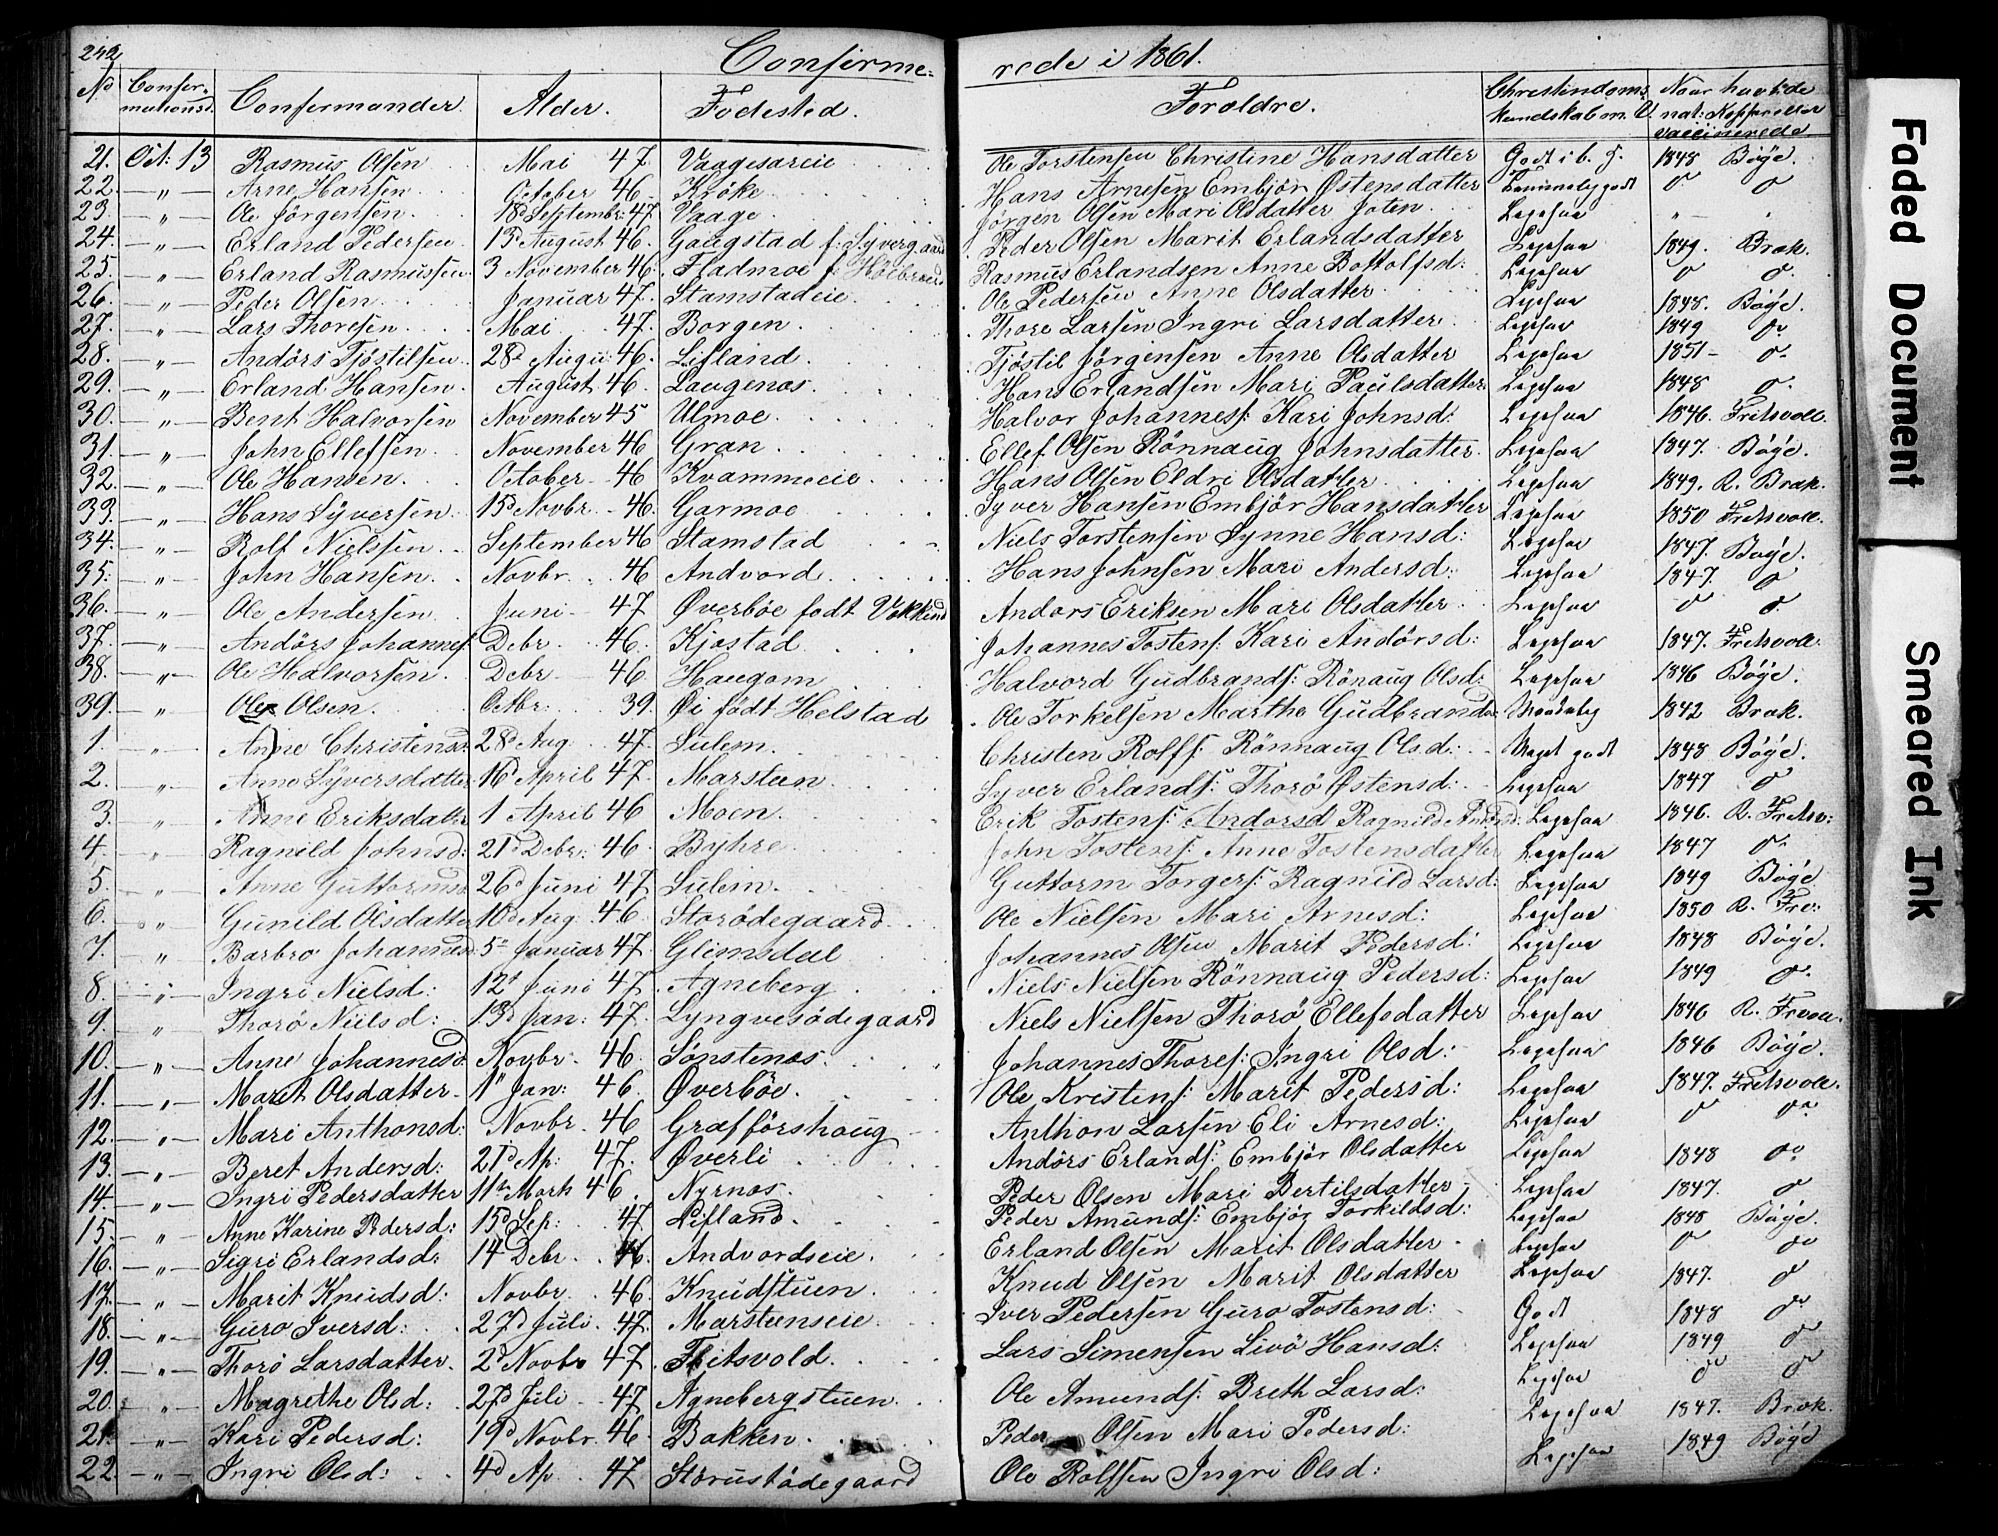 242 Confirme= rede i 1861.
No Confir- mationsd. Confermander. Alder. Födested. Foroldre. Christindoms kundskab m. V. Naar havt de nat: Kopper eller vaccinerede
21. Oct: 13 Rasmus Olsen Mai 47. Vaagesareie Ole Torstensen Christine Hansdatter Godt i b. f. 1848 Böye.
22. —„— Arne Hansen October 46. Kröke Hans Arnesen Embjör Östensdatter godt o o
23. —„— Ole Jörgensen. 18d Septembr: 47. Vaage. Jörgen Olsen Mari Olsdatter Joten Ligesaa „ - .
24. —„— Erland Pedersen 13d August 46. Gaugstad f: Syvergaard Peder Olsen Marit Erlandsdatter Ligesaa 1849. Brak.
25. —„— Erland Rasmussen 3 November 46. Fladmoe f: Rasmus Erlandsen Anne Bottolfsd: Ligesaa o o.
26. —„— Peder Olsen Januar 47. Stamstadeie Ole Pedersen Anne Olsdatter Ligesaa 1848. Böye.
27. —„— Lars Thoresen Mai 47. Borgen. Thore Larsen Ingri Larsdatter Ligesaa 1849 o
28. —„— Andörs Tjöstilsen 28d Augu: 46. Lifland. Tjöstil Jörgensen Anne Olsdatter Ligesaa 1851 - o.
29. —„— Erland Hansen August 46. Laugenæs. Hans Erlandsen Mari Paulsdatter Ligesaa 1848 o.
30. —„— Bent Halvorsen November 45 Ulmoe. Halvor Johannesf: Kari Johnsd: Ligesaa 1846. Fritsvoll.
31. —„— John Ellefsen. November 46 Gran. Ellef Olsen Rönnaug Johnsdatter. Ligesaa 1847. Böye.
32. —„— Ole Hansen October 46 Kvammeeie Hans Olsen Eldri Olsdatter Ligesaa 1849. R. Brak.
33. —„— Hans Syversen. 15d Novbr. 46. Garmoe Syver Hansen Embjör Hansdatter Ligesaa 1850 Fritsvoll.
34. —„— Rolf Nielssen. September 46 Stamstad Niels Torstensen Synne Hansd: Ligesaa 1847. Böye.
35. —„— John Hansen. Novbr. 46 Andvord Hans Johnsen Mari Andersd: Ligesaa 1847. o
36. —„— Ole Andersen Juni 47 Överböe födt Andors Eriksen Mari Olsdatter Ligesaa o o
37. —„— Andörs Johannesf. Debr. 46. Kjæstad Johannes Tostenf: Kari Andörsd: Ligesaa 1847. Fritsvoll.
38. —„— Ole Halvorsen. Debr 46 Haugom Halvord Gudbrandf: Rönaug Olsd: Ligesaa 1846 Böye.
39. „ Ole Olsen. Octbr: 39. Öi födt Helstad Ole Torkelsen Marthe Gudbrandsd 1842 Brak.
1. —„— Anne Christensd: 28d Aug. 47. Sulem. Christen Rolff: Rönnaug Olsd: Meget godt 1848 Böye.
2. —„— Anne Syversdatter 16d April 47. Marsteen Syver Erlandf: Thorö Östensd: Ligesaa 1847 o
3. „ Anne Eriksdatter 1 April 46 Moen. Erik Tostenf: Andorsd Ragnild Ligesaa 1846. R. Fritsv:
4. „ Ragnild Johnsd: 21d Debr: 46. Byhre John Tostenf: Anne Tostensdatter Ligesaa 1847 o.
5. „ Anne Guttormsd 26d Juni 47. Sulem. Guttorm Torgerf: Ragnild Larsd: Ligesaa 1849 Böye
6. „ Gunild Olsdatter 10d Aug. 46. Storödegaard. Ole Nielsen Mari Arnesd: Ligesaa 1850 R. Fri:
7. „ Barbro Johannesd 5te Januar 47. Glimsdal Johannes Olsen Marit Pedersd: Ligesaa 1848 Böye.
8. —„— Ingri Nielsd: 12t Juni 47. Agneberg Niels Nielsen Rönnaug Pedersd: Ligesaa 1849 o.
9. „ Thorö Nielsd: 13d Jan: 47. Lyngvesödegaard Niels Nielsen Thorö Ellefsdatter Ligesaa 1846 R. Frvoll.
10. —„— Anne Johannesd: Novbr. 46. Sönstenæs. Johannes Thoref: Ingri Olsd: Ligesaa 1846 Böye.
11. —„— Marit Olsdatter. 1te Jan: 46. Överböe. Ole Kristenf: Marit Pedersd: Ligesaa 1847. Fritsvoll.
12. —„— Mari Anthonsd: Novbr. 46 Grafförshaug Anthon Larsen Eli Arnesd: Ligesaa o o
13. —„— Beret Andersd: 21d Ap: 47. Överli Andörs Erlandf: Embjör Olsdatter Ligesaa 1848 o
14. —„— Ingri Pedersdatter 11te Marts 46. Nyrnæs. Peder Olsen Mari Bertilsdatter Ligesaa 1847. o
15. —„— Anne Karine Pedersd: 15d Sep: 47. Lifland. Peder Amundf: Embjör Torkildsd: Ligesaa 1848 Böye.
16. —„— Sigri Erlandsd: 14 Debr. 46. Andvordseie. Erland Olsen Marit Olsdatter Ligesaa o o
17. —„— Marit Knudsd: Novbr. 46. Knudstuen. Knud Olsen Marit Olsdatter Ligesaa 1847. o
18. —„— Guro Iversd: 27d Juli. 47. Marsteenseie. Iver Pedersen Guro Tostensd: Godt 1848 o
19. —„— Thorö Larsdatter. 2d Novbr 47. Fritsvold. Lars Simensen Livö Hansd: Ligesaa 1849 o
20. —„— Magrethe Olsd: 27d Juli 47. Agnebergstuen. Ole Amundf: Breth Larsd: Ligesaa o o
21. —„— Kari Pedersd: 19d Novbr. 46. Bakken. Peder Olsen Mari Pedersd: Ligesaa 1847. Brak.
22. —„— Ingri Olsd: 4d Ap 47 Storustödegaard Ole Rolfsen Ingri Olsd: Ligesaa 1849 Böye
Faded Document
Smeared Ink